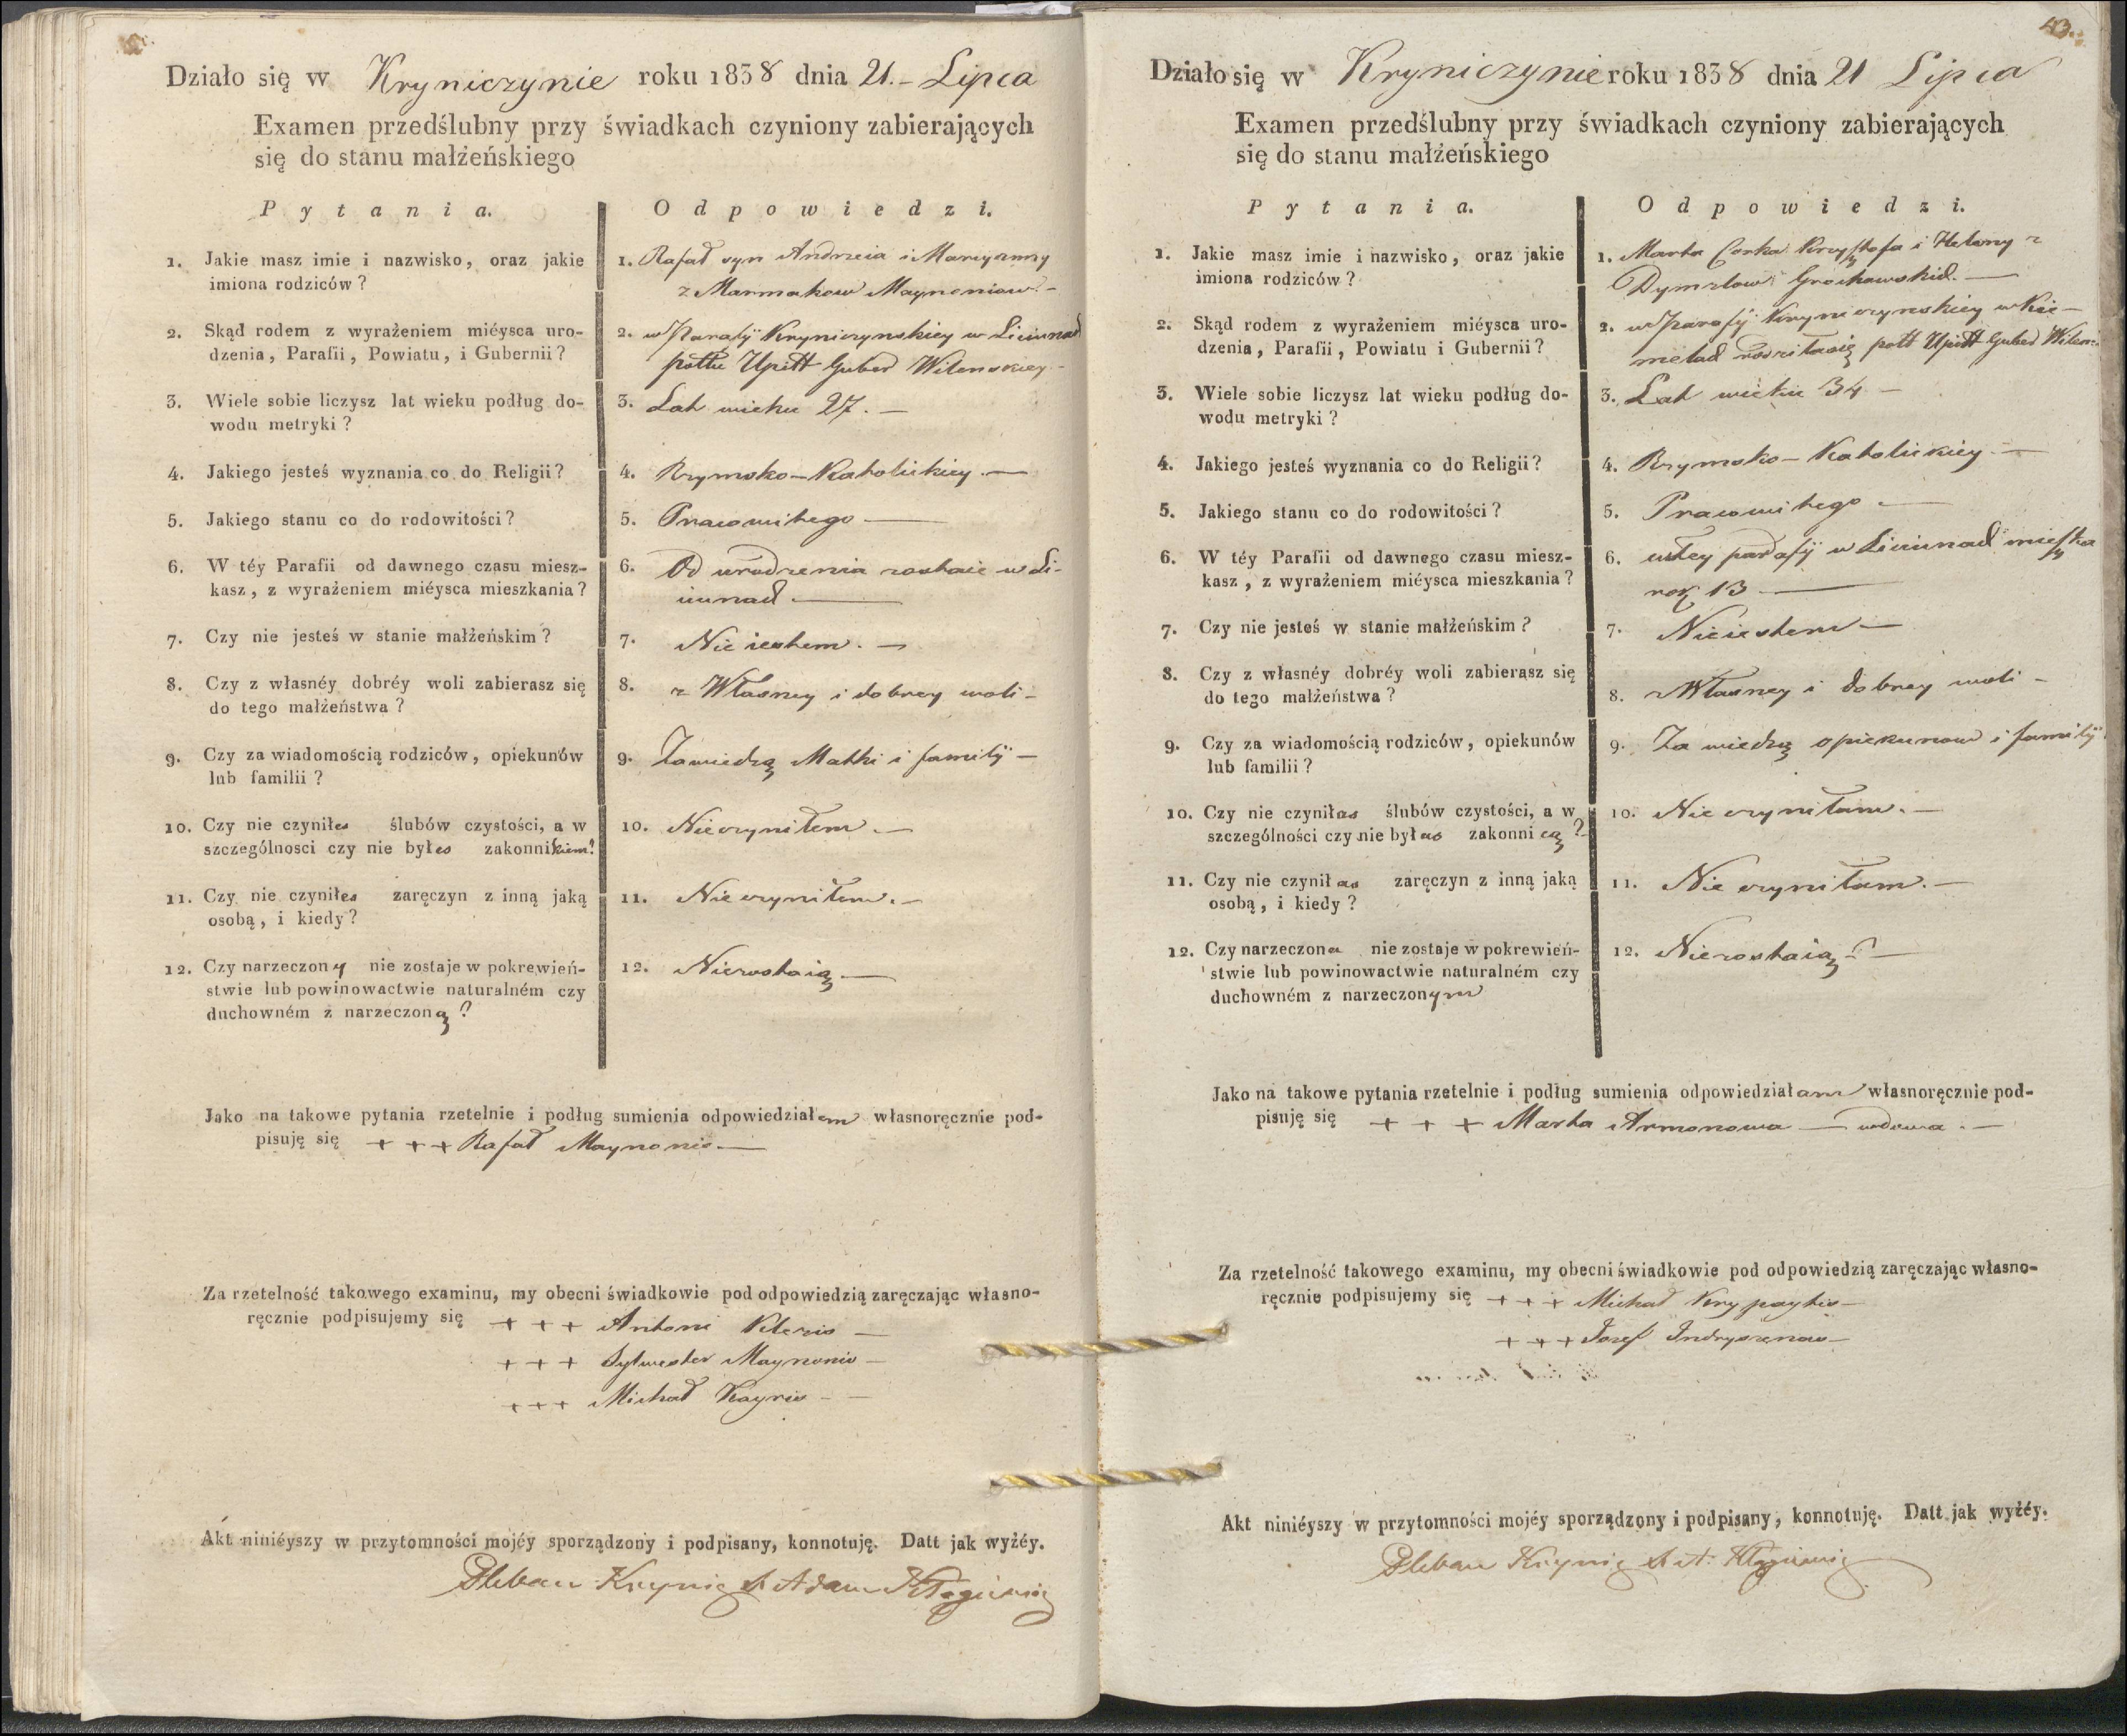 Działo się w Kryniczynie roku 1838 dnia 21.- Lipca
Examen przedślubny przy świadkach czyniony zabierających
się do stanu małżeńskiego
Pytania.
Odpowiedzi.
1. Jakie masz imie i nazwisko, oraz jakie
imiona rodziców?
1. Rafał syn Andrzeia i Maryanny
z Marmakow Maynoniow -
2. Skąd rodem z wyrażeniem miéysca uro-
dzenia, Parafii, Powiatu, i Gubernii?
2. w Parafÿ Kryniczynskiey w Liciunad
pottu Upitt Guber Wilenskiey -
3. Wiele sobie liczysz lat wieku podług do-
wodu metryki?
3. Lat wieku 27. —
4. Jakiego jesteś wyznania co do Religii?
4. Rzymsko-Katolickiey. —
5. Jakiego stanu co do rodowitości?
5. Pracowitego —
6. W téy Parafii od dawnego czasu miesz-
kasz, z wyrażeniem miéysca mieszkania?
6. Od urodzenia zostaie w Li-
ciunad. —
7. Czy nie jesteś w stanie małżeńskim?
7. Nie iestem. —
8. Czy z własnéy dobréy woli zabierasz się
do tego małżeństwa?
8. z Własney i dobrey woli -
9. Czy za wiadomością rodziców, opiekunów
lub familii?
9. Zawiedzą Matki i familÿ —
10. Czy nie czyniłes ślubów czystości, a w
szczególnosci czy nie byłes zakonnikiem?
10. Nieczyniłem. —
11. Czy nie czyniłes zaręczyn z inną jaką
osobą, i kiedy?
11. Nie czyniłem. —
12. Czy narzeczony nie zostaje w pokrewień-
stwie lub powinowactwie naturalném czy
duchowném z narzeczoną?
12. Niezostaią. —
Jako na takowe pytania rzetelnie i podług sumienia odpowiedziałem własnoręcznie pod-
pisuję się + + + Rafał Maynonis —
Za rzetelność takowego examinu, my obecni świadkowie pod odpowiedzią zaręczając własno-
ręcznie podpisujemy się + + + Antoni —
+ + + Sylwester Maynonis —
+ + + Michał Kayris - -
Akt niniéyszy w przytomności mojéy sporządzony i podpisany, konnotuję. Datt jak wyżéy.
Pleban Krynic X Adam
43.
Działo się w Kryniczynie roku 1838 dnia 21 Lipca
Examen przedślubny przy świadkach czyniony zabierających
się do stanu małżeńskiego
Pytania.
Odpowiedzi.
1. Jakie masz imie i nazwisko, oraz jakie
imiona rodziców?
1. Marta Corka Krzysztofa i Heleny z
Grochowskich —
2. Skąd rodem z wyrażeniem miéysca uro-
dzenia, Parafii, Powiatu i Gubernii?
2. w Parafÿ Kryniczynskiey w Kie-
metad rodziłasię pott Upitt Guber Wilen:
3. Wiele sobie liczysz lat wieku podług do-
wodu metryki?
3. Lat wieku 34 —
4. Jakiego jesteś wyznania co do Religii?
4. Rzymsko-Katolickiey. —
5. Jakiego stanu co do rodowitości?
5. Pracowitego —
6. W téy Parafii od dawnego czasu miesz-
kasz, z wyrażeniem miéysca mieszkania?
6. wtey parafÿ w Liciunad mieszka
rok 13 —
7. Czy nie jesteś w stanie małżeńskim?
7. Nieiestem —
8. Czy z własnéy dobréy woli zabierasz się
do tego małżeństwa?
8. z Własney i dobrey woli -
9. Czy za wiadomością rodziców, opiekunów
lub familii?
9. Za wiedzą opiekunow i familÿ.
10. Czy nie czyniłas ślubów czystości, a w
szczególności czy nie byłas zakonnicą?
10. Nie czyniłam. —
11. Czy nie czyniłas zaręczyn z inną jaką
osobą, i kiedy?
11. Nie czyniłam. —
12. Czy narzeczona nie zostaje w pokrewień-
stwie lub powinowactwie naturalném czy
duchowném z narzeczonym
12. Niezostaią —
Jako na takowe pytania rzetelnie i podług sumienia odpowiedziałam własnoręcznie pod-
pisuję się + + + Marta Armonowa — wdowa. —
Za rzetelność takowego examinu, my obecni świadkowie pod odpowiedzią zaręczając własno-
ręcznie podpisujemy się + + + Michał —
+ + + Jozef —
Akt niniéyszy w przytomności mojéy sporządzony i podpisany, konnotuję. Datt jak wyżéy.
Pleban Krynic X A.